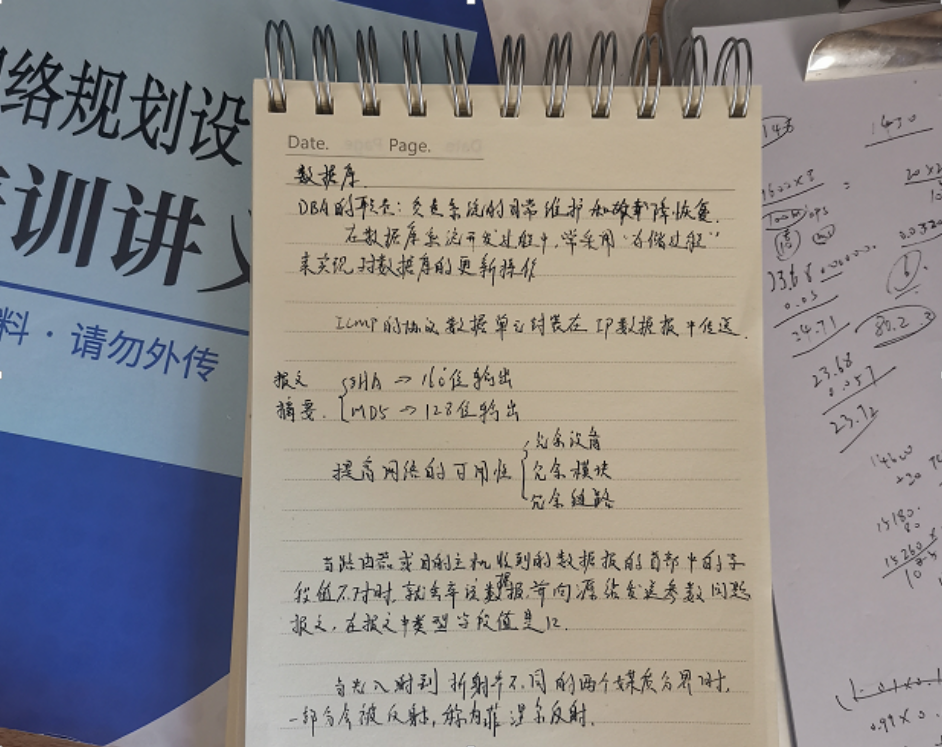 络规划设
训讲义
料·请勿外传
Date. Page.
数据库.
DBA的职责：负责系统的日常维护和故障恢复.
在数据库系统开发过程中，常采用“存储过程”
来实现对数据库的更新操作
ICMP的协议数据单元封装在IP数据报中传送.
报文
摘要.
SHA → 160位输出
MD5 → 128位输出
提高网络的可用性
冗余设备
冗余模块
冗余链路
当路由器或目的主机收到的数据报的首部中的字
段值不对时,就丢弃该数据报,并向源站发送参数问题
报文,在报文中类型字段值是12.
当光入射到折射率不同的两个媒质分界时,
一部分会被反射,称为菲涅尔反射.
1430
23.68
0.03
24.71
80.2
23.68
0.057
23.72
15180
80
15260